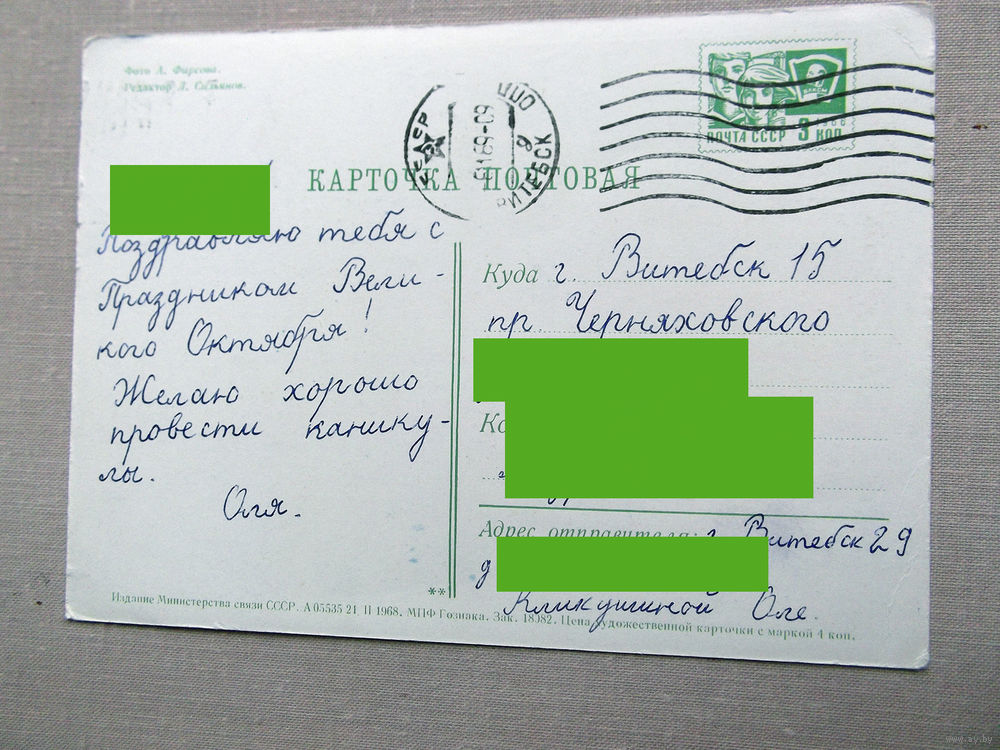 Фото А. Фирсова.
Редактор Л. Сазьянов.
ВИТЕБСК
ПОЧТА СССР 3 КОП
ВЛКСМ
КАРТОЧКА ПОЧТОВАЯ
Поздравляю тебя с
Праздником Вели-
кого Октября!
Желаю хорошо
провести канику-
лы.
Оля.
Куда г. Витебск 15
пр. Черняховского
Адрес отправителя: г. Витебск 29
Кликушиной Оле.
**
Издание Министерства связи СССР. А 05535 21. II 1968. МПФ Гознака. Зак. 18982. Цена художественной карточки с маркой 4 коп.
www.ay.by